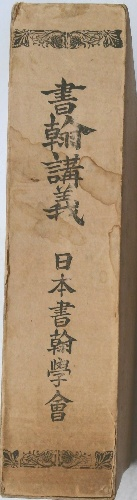 書翰講義
日本書翰學會